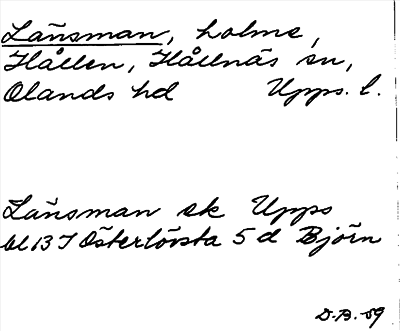 Länsman, holme,
Hållen, Hållnäs sn,
Olands hd Upps. l.
Länsman sk Upps
bl 13 I Österlövsta 5 d Björn
D.A. -59